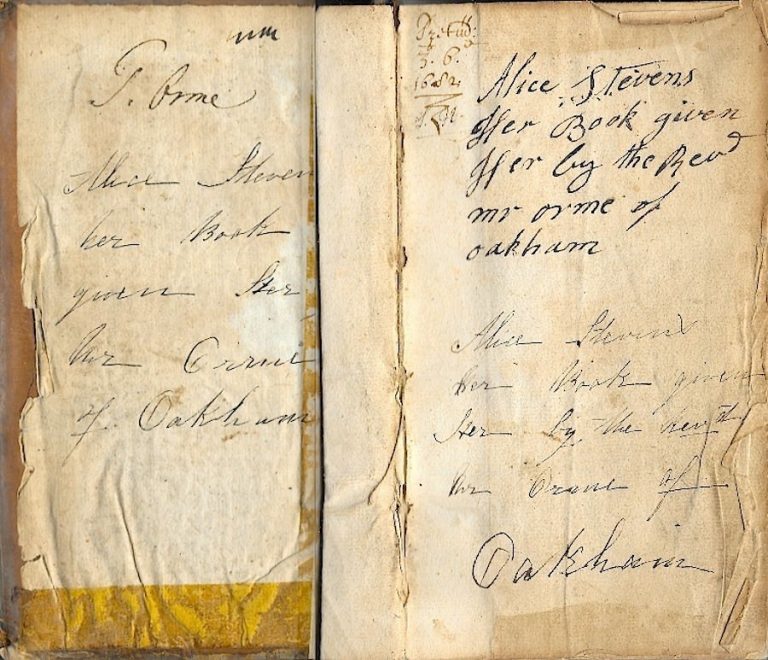 T. Orme
Alice Steven
her Book
given Her
Mr Orme
of Oakham
1682
Alice Stevens
Her Book given
Her by the Revd
mr orme of
oakham
Alice Stevens
her Book given
Her by the revd
Mr Orme of
Oakham